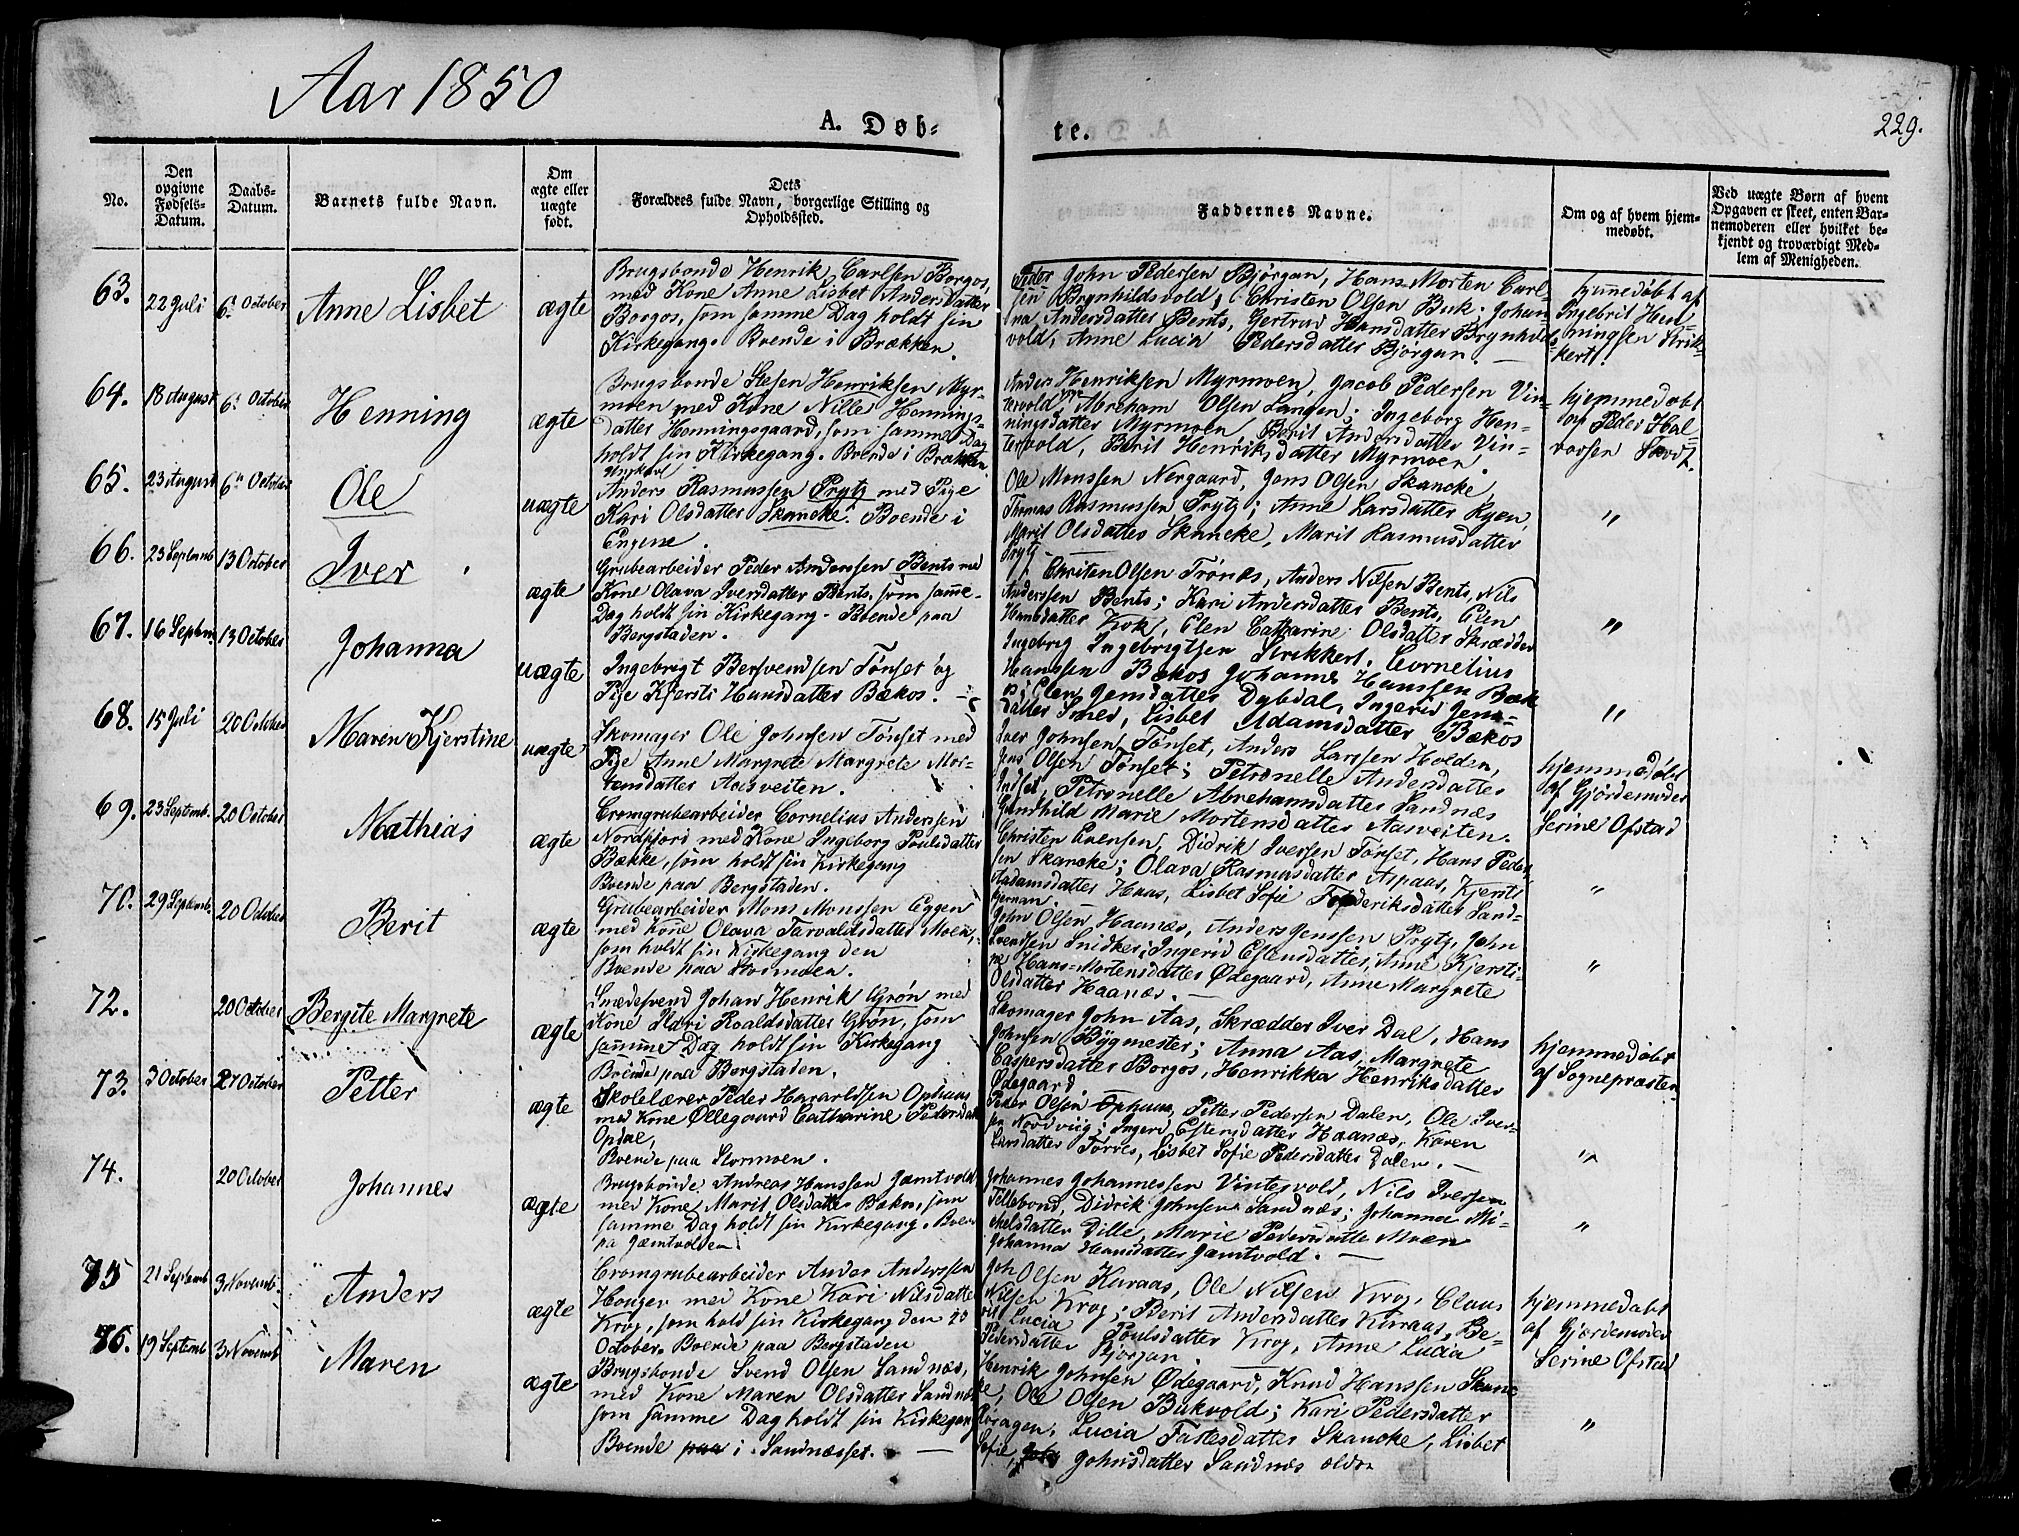 Aar 1850
A. Døb-
te.
229.
No.
Den
opgivne
Fødsels-
Datum.
Daabs-
Datum.
Barnets fulde Navn.
Om
ægte eller
uægte
født.
Dets
Forældres fulde Navn, borgerlige Stilling og
Opholdssted.
Faddernes Navne.
Om og af hvem hjem-
medøbt.
Ved uægte Børn af hvem
Opgaven er skeet, enten Bar-
nemoderen eller hvilket be-
kjendt og troværdigt Med-
lem af Menigheden.
63.
22 Juli
6. October
Anne Lisbet
ægte
Brugsbonde Henrik Carlsen Borgos,
med Kone Anne Lisbet Anders Datter
Borgos, som samme Dag holdt sin
Kirkegang. Boende i Brækken.
John Pedersen Bjørgan, Hans Morten Carl-
sen Brynhildsvold, Christen Olsen Buk; Johan-
na Andersdatter Bents, Gertrud Hansdatter Brynhilds-
vold, Anne Lucia Pedersdatter Bjørgan. —
hjemmedøbt af
Ingebrit Hen-
ningsen Strik-
kert.
64.
18 August
6. October
Henning
ægte
Brugsbonde Stefen Henriksen Myr-
moen med Kone Nille Hennings-
datter Henningsgaard, som samme Dag
holdt sin Kirkegang. Boende i Brækken.
Anders Henriksen Myrmoen, Jacob Pedersen Vin-
tervold, Abraham Olsen Langen; Ingeborg Hen-
ningsdatter Myrmoen, Berit Andersdatter Vin-
tervold, Berit Henriksdatter Myrmoen.
hjemmedøbt
af Peder Hal-
vorsen Skodt.
65.
23 August
6. October
Ole
uægte
Ungkarl
Anders Rasmussen Prytz med Pige
Kari Olsdatter Skancke. Boende i
Engene.
Ole Monssen Nergaard, Jens Olsen Skancke,
Thomas Rasmussen Prytz; Anne Larsdatter Ryen,
Marit Olsdatter Skancke, Marit Rasmusdatter
Prytz. —
"
66.
23 Septemb
13 October
Iver
ægte
Grubearbeider Peder Andersen Bents med
Kone Olava Iversdatter Bents, som samme
Dag holdt sin Kirkegang. Boende paa
Bergstaden.
Christen Olsen Trønæs, Anders Nilsen Bents, Nils
Anderssen Bents; Kari Andersdatter Bents, Elen
Hansdatter Kok, Elen Catharine Olsdatter Skrædder
"
67.
16 Septem
13 October
Johanna
uægte
Ingebrigt Bersvendsen Tønset og
Pige Kjersti Hansdatter Bækos. —
Ingebrig Ingebrigtsen Strikkert. Cornelius
Hanssen Bækos, Johannes Hanssen Bæk-
os; Elen Jensdatter Dybdal, Ingerid Jens-
datter Smed, Lisbet Adamsdatter Bækos
"
68.
15 Juli
20 October
Maren Kjerstine
uægte
Skomager Ole Johnsen Tønset med
Pige Anne Margrete Margrete Mor-
tensdatter Aasveiten.
Iver Johnsen Tønset, Anders Larssen Holden,
Jens Olsen Tønset; Petronelle Andersdatter
Indset, Petronelle Abrehamsdatter Sandnæs
Gundhild Marie Mortensdatter Aasveiten.
hjemmedøbt
af Gjordemoder
Serine Ofstad
69.
23 Septemb.
20 October
Mathias
ægte
Cromgrubearbeider Cornelius Anderssen
Nordfjord med Kone Ingeborg Poulsdatter
Bække, som holdt sin Kirkegang
Boende paa Bergstaden.
Christen Evensen, Didrik Iversen Tønset, Hans Peder-
sen Skancke; Olava Rasmusdatter Aspaas, Kjersti
Aadamsdatter Haas, Lisbet Sofie Frederiksdatter Sand-
"
70.
29 Septemb.
20 October
Berit
ægte
Grubearbeider Mons Monssen Eggen
med Kone Olava Tarvaldsdatter Moen,
som holdt sin Kirkegang den
Boende paa Stormoen.
John Olsen Haanæs, Anders Jenssen Prytz, John
Svendsen Snidker; Ingerid Estensdatter, Anne Kjersti-
ne Hans-Mortensdatter Ødegaard, Anne Margrete
Olsdatter Haanæs. —
"
72.
20 October
Bergite Margrete
ægte
Smedesvend Johan Henrik Grøn med
Kone Kari Roaldsdatter Grøn, som
samme Dag holdt sin Kirkegang
Boende paa Bergstaden.
Skomager John Aas, Skrædder Iver Dal, Hans
Johnsen Bygmester; Anna Aas, Margrete
Caspersdatter Borgos, Henrikka Henriksdatter
Ødegaard
hjemmedøbt
af Sognepræsten
73.
3 October
27 October
Petter
ægte
Skolelærer Peder Hararldssen Ophaug
med Kone Ollegaard Catharine Pedersdat
Opdal,
Boende paa Stormoen.
Peder Olsen Ophaug, Petter Pedersen Dalen, Ole Iver-
sen Nordviig; Ingerid Estensdatter Haanæs, Karen
Larsdatter Torres, Lisbet Sofie Pedersdatter Dalen. —
"
74.
20 October
Johannes
ægte
Brugsbonde Andreas Hanssen Jamtvold
med Kone Marit Olsdatter Bakn, som
samme Dag holdt sin Kirkegang. Boen
pa Jæmtvolden.
Johannes Johannessen Vintervold, Nils Iversen
Tellebond, Didrik Johnsen Sandnæs; Johanna Mi-
chelsdatter Dille, Marie Pedersdatter Moen
Johanna Hansdatter Jamtvold. —
"
75
21 Septemb
3 Novemb.
Anders
ægte
Cromgrubearbeider Anders Anderssen
Houger med Kone Kari Nilsdatter
Krog, som hold sin Kirkegang den 20
October. Boende paa Bergstaden
Joh Olsen Kuraas, Ole Nilsen Krog, Claus
Nilsen Krog; Berit Andersdatter Kuraas, Be-
rit Lucia Poulsdatter Krog, Anne Lucia
Pedersdatter Bjørgan.
hjemmedøbt
af Gjordemoder
Serine Ofstad
76.
19 Septemb
3 Novemb
Maren
ægte
Brugsbonde Svend Olsen Sandnæs,
med Kone Maren Olsdatter Sandnæs
som samme Dag holdt sin Kirkegang
Boende paa i Sandnæsset. —
Henrik Johnsen Ødegaard, Knud Hanssen Skanc
ke, Ole Olsen Bukvold; Kari Pedersdatter
Røragen, Lucia Fastesdatter Skancke, Lisbet
Sofie, Johnsdatter Sandnæs
"